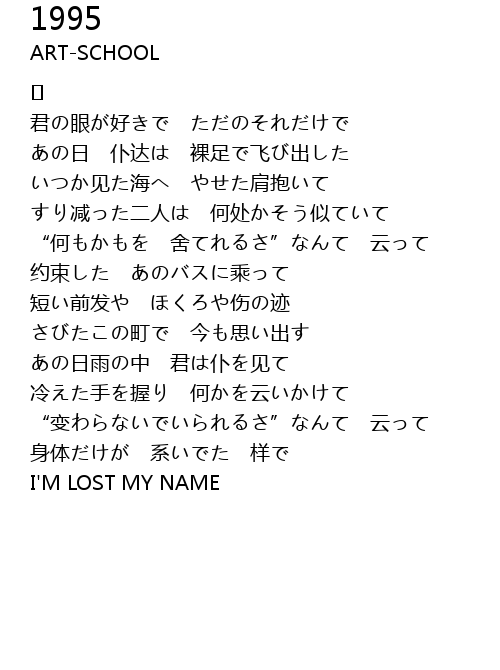 1995
ART-SCHOOL
[]
君の眼が好きで　ただのそれだけで
あの日　仆达は　裸足で飞び出した
いつか见た海へ　やせた肩抱いて
すり减った二人は　何処かそう似ていて
“何もかもを　舍てれるさ”なんて　云って
约束した　あのバスに乘って
短い前发や　ほくろや伤の迹
さびたこの町で　今も思い出す
あの日雨の中　君は仆を见て
冷えた手を握り　何かを云いかけて
“变わらないでいられるさ”なんて　云って
身体だけが　系いでた　样で
I'M LOST MY NAME